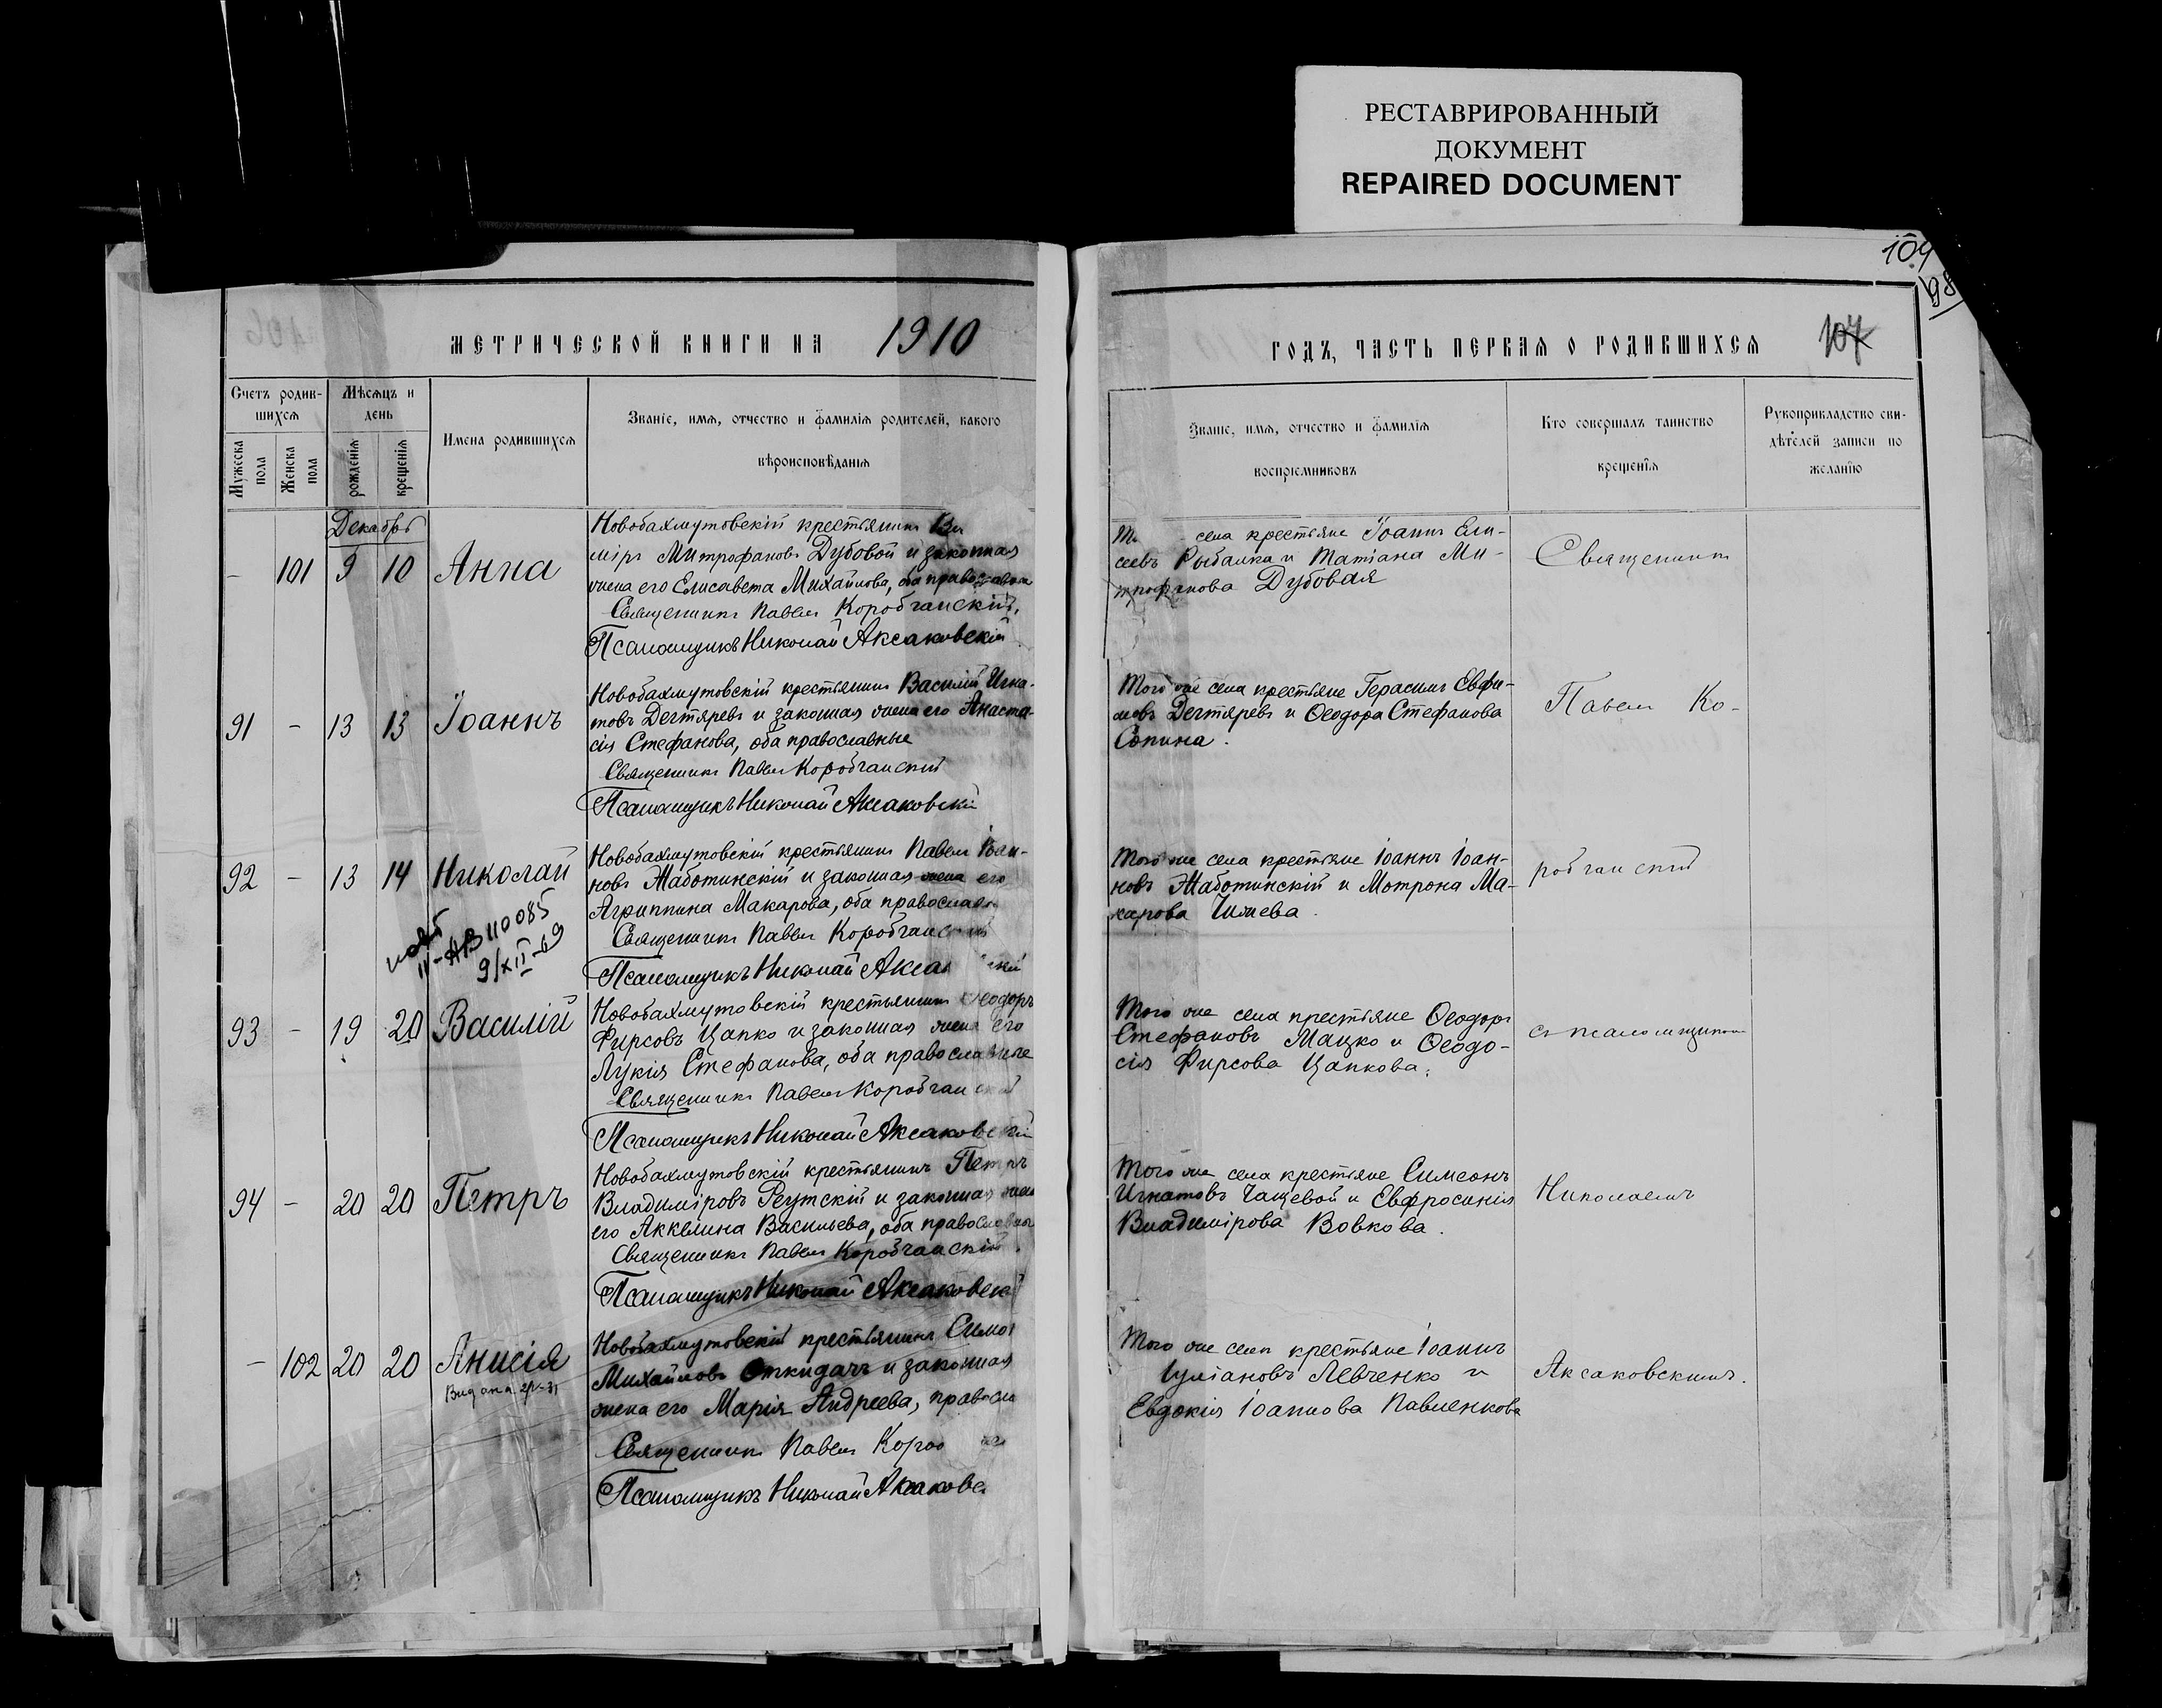 РЕСТАВРИРОВАННЫЙ
ДОКУМЕНТ
REPAIRED DOCUMENT
МЕТРИЧЕСКОЙ КНИГИ НА 1910
Счетъ родив-
шихся
Мѣсяцъ и
день
Имена родившихся
Званіе, имя, отчество и фамилія родителей, какого
вѣроисповѣданія
Мужеска
пола
Женска
пола
рожденія
крещенія
Декабрь
- 101 9 10 Анна
Новобахмутовскій крестьянинъ
міръ Митрофановъ Дубовой и законная
жена его Елисавета Михайлова, оба православные
Священникъ Павелъ Коробчанскій.
Псаломщикъ Николай Аксаковскій
91 - 13 13 Іоаннъ
Новобахмутовскій крестьянинъ Василій Игна-
товъ Дегтяревъ и законная жена его Анаста-
сія Стефанова, оба православные
Священникъ Павелъ Коробчанскій
Псаломщикъ Николай Аксаковскій
92 - 13 14 Николай
II-АВ 110085
9/XII-69
Новобахмутовскій крестьянинъ Павелъ Іоан-
новъ Жаботинскій и законная жена его
Агриппина Макарова, оба православн
Священникъ Павелъ Коробчанскій
Псаломщикъ Николай
93 - 19 20 Василій
Новобахмутовскій крестьянинъ Ѳеодоръ
Фирсовъ Цапко и законная жена его
Лукія Стефанова, оба православные
Священникъ Павелъ Коробчанскій
Псаломщикъ Николай Аксаковскій
94 - 20 20 Петръ
Новобахмутовскій крестьянинъ Петръ
Владиміровъ Реутскій и законная жена
его Акквлина Васильева, оба православные
Священникъ Павелъ Коробчанскій.
Псаломщикъ Николай Аксаковскій
- 102 20 20 Анисія
Новобахмутовскій крестьянинъ
Михайловъ Откидачъ и законная
жена его Марія Андреева, правосла
Священникъ Павелъ
Псаломщикъ Николай Аксаковс
109
98
107
ГОДЪ, ЧАСТЬ ПЕРВАЯ О РОДИВШИХСЯ
Званіе, имя, отчество и фамилія
воспріемниковъ
Кто совершалъ таинство
крещенія
Рукоприкладство сви-
дѣтелей записи по
желанію
села крестьяне Іоаннъ Ели-
сеевъ Рыбалка и Татіана Ми-
трофанова Дубовая
Священникъ
Того же села крестьяне Герасимъ Евфи-
мовъ Дегтяревъ и Ѳеодора Стефанова
Сопина.
Павелъ Ко-
Того же села крестьяне Іоаннъ Іоан-
новъ Жаботинскій и Мотрона Ма-
карова
робчанскій
Того же села крестьяне Ѳеодоръ
Стефановъ Мацко и Ѳеодо-
сія Фирсова Цапкова.
съ псаломщикомъ
Того же села крестьяне Симеонъ
Игнатовъ Чащевой и Евфросинія
Владимірова Вовкова.
Николаемъ
Того же села крестьяне Іоаннъ
Іуліановъ Левченко и
Евдокія Іоаннова Павленкова
Аксаковскимъ.